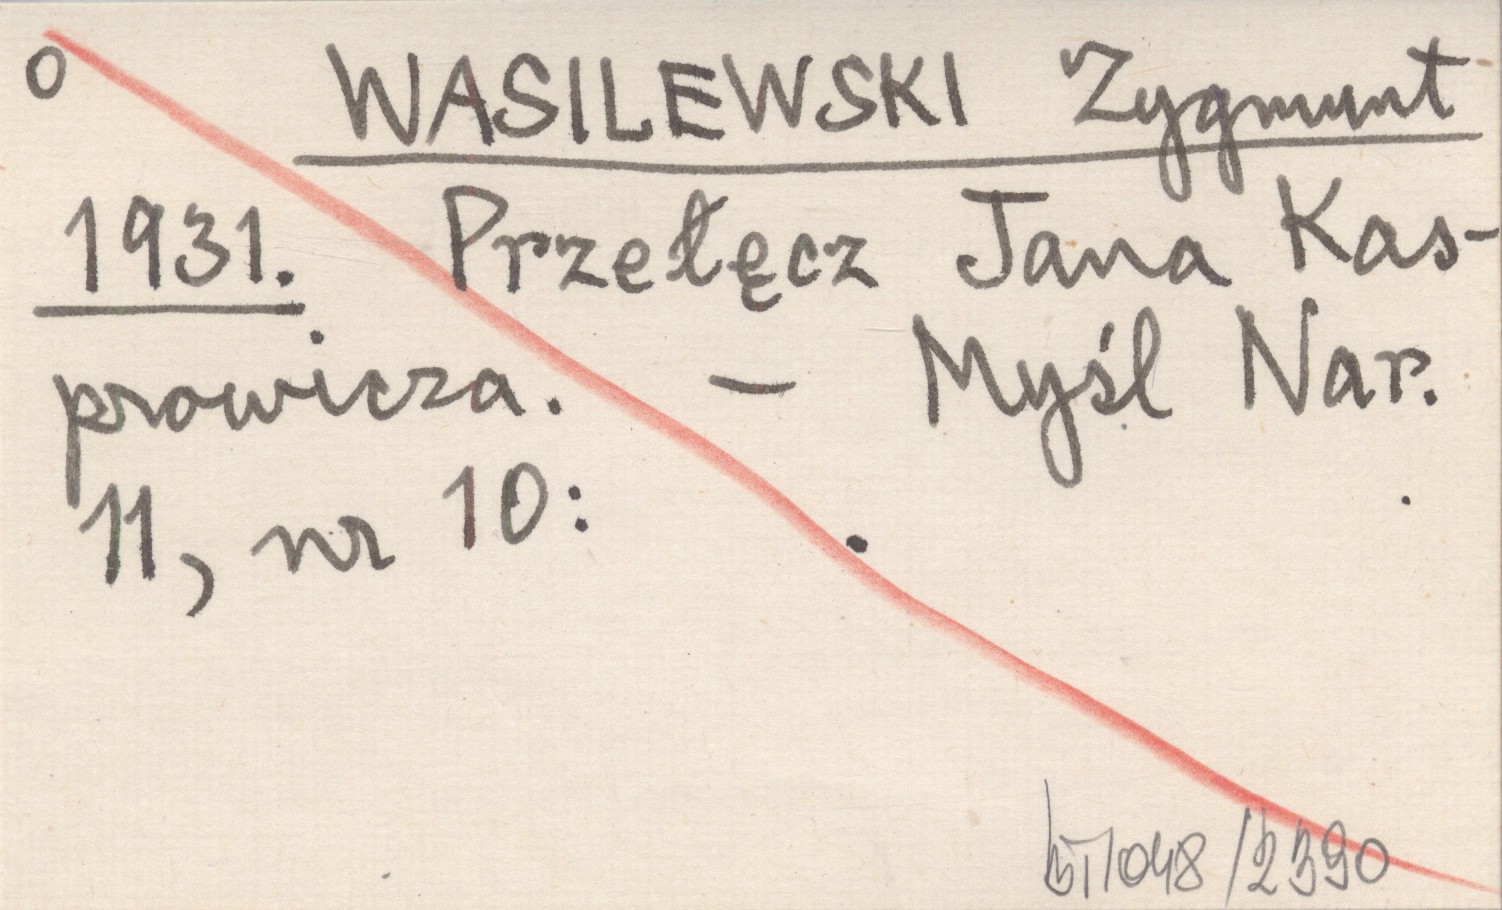 o WASILEWSKI Zygmunt
1931. Przełęcz Jana Kas-
prowicza. – Myśl Nar.
11, nr 10: .
BT/048/2390